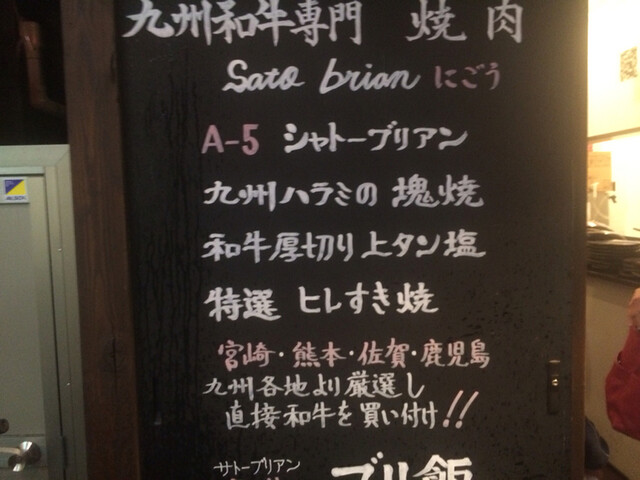 九州和牛専門 焼肉
Sato brian にごう
A-5 シャトーブリアン
九州ハラミの塊焼
和牛厚切り上タン塩
特選 ヒレすき焼
宮崎・熊本・佐賀・鹿児島
九州各地より厳選し
直接和牛を買い付け!!
サトーブリアン
ブリ飯